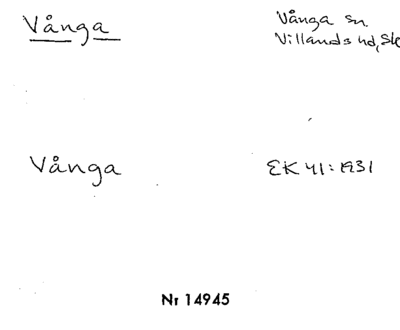 Vånga
Vånga sn.
Villands hd, Sk
Vånga
EK 41:1931
Nr 14945